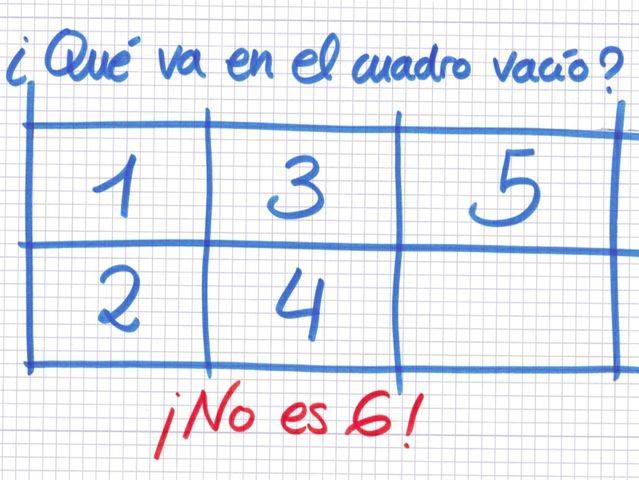 ¿Qué va en el cuadro vacío?
1 3 5
2 4
¡No es 6!